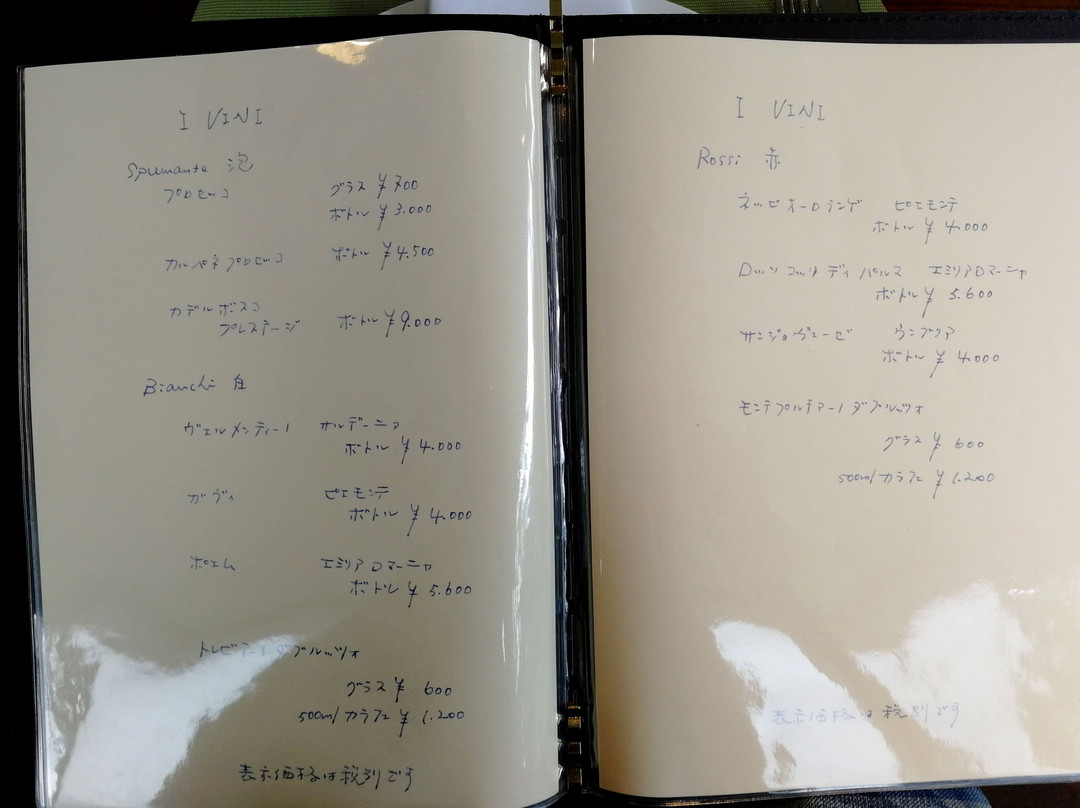 I VINI
Spumante 泡
プロセッコ グラス ¥700
ボトル ¥3.000
カルペネプロセッコ ボトル ¥4.500
カデルボスコ
プレステージ ボトル ¥9.000
Bianchi 白
ヴェルメンティーノ サルデーニア
ボトル ¥4.000
ガヴィ ピエモンテ
ボトル ¥4.000
ポエム エミリアロマーニャ
ボトル ¥5.600
トレビアーノダブルッツォ
グラス ¥600
500ml カラフェ ¥1.200
表示価格は税別です
I VINI
Rossi 赤
ネッビオーロランゲ ピエモンテ
ボトル ¥4.000
ロッソ コッリ ディ パルマ エミリアロマーニャ
ボトル ¥5.600
サンジョヴェーゼ ウンブリア
ボトル ¥4.000
モンテプルチアーノダブルッツォ
グラス ¥600
500ml カラフェ ¥1.200
表示価格は税別です